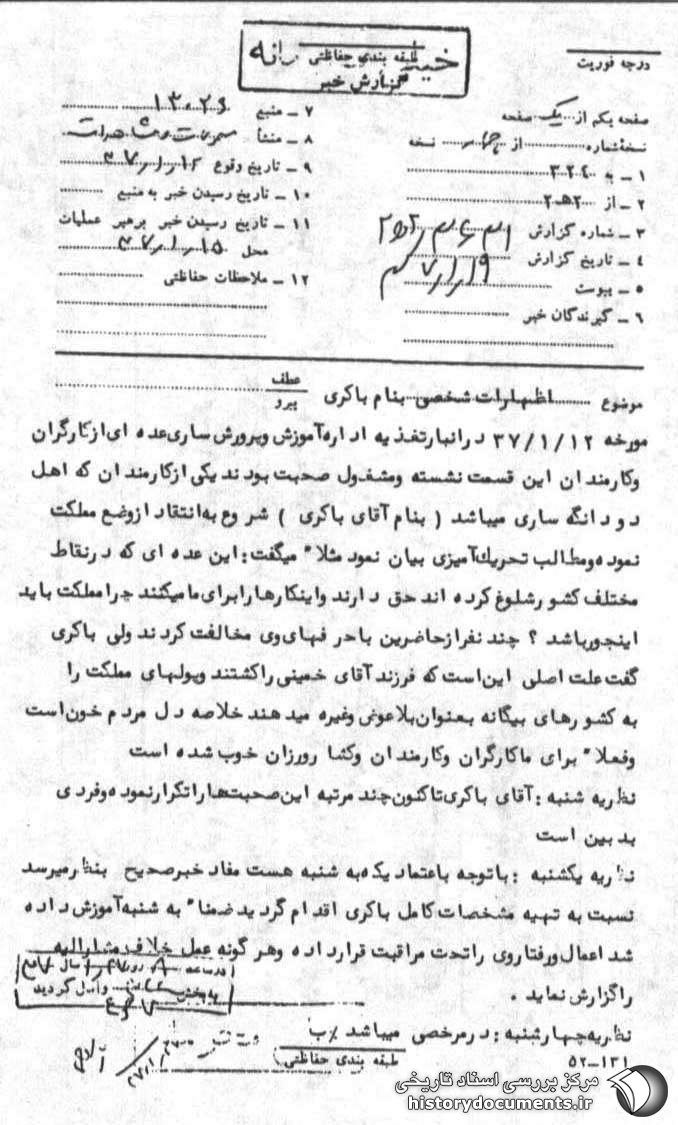 طبقه بندی حفاظتی
خیلی محرمانه
گزارش خبر
درجه فوریت
صفحه یکم از یک صفحه
نسخهٔ شماره از نسخه
۱ ـ به ۳۲۴
۲ ـ از ۲ه۲
۳ ـ شماره گزارش
۴ ـ تاریخ گزارش
۵ ـ پیوست
۶ ـ گیرندگان خبر
۷ ـ منبع
۸ ـ منشأ
۹ ـ تاریخ وقوع ۳۷/۱/۱۲
۱۰ ـ تاریخ رسیدن خبر به منبع
۱۱ ـ تاریخ رسیدن خبر برهبر عملیات
محل ۳۷/۱/۱۵
۱۲ ـ ملاحظات حفاظتی
موضوع اظهارات شخصی بنام باکری
عطف
پیرو
مورخه ۳۷/۱/۱۲ در انبار تغذیه اداره آموزش وپرورش ساری عده ای از کارگران
وکارمندان این قسمت نشسته ومشغول صحبت بودند یکی از کارمندان که اهل
دودانگه ساری میباشد ( بنام آقای باکری ) شروع به انتقاد از وضع مملکت
نموده ومطالب تحریک آمیزی بیان نمود مثلا" میگفت : این عده ای که در نقاط
مختلف کشور شلوغ کرده اند حق دارند واینکارها را برای ما میکنند چرا مملکت باید
اینجور باشد ؟ چند نفر از حاضرین با حرفهای وی مخالفت کردند ولی باکری
گفت علت اصلی این است که فرزند آقای خمینی را کشتند وپولهای مملکت را
به کشورهای بیگانه بعنوان بلاعوض وغیره میدهند خلاصه دل مردم خون است
وفعلا" برای ما کارگران وکارمندان وکشاورزان خوب شده است
نظریه شنبه : آقای باکری تاکنون چند مرتبه این صحبت ها را تکرار نموده وفردی
بدبین است
نظریه یکشنبه : با توجه باعتماد یکه به شنبه هست مفاد خبر صحیح بنظر میرسد
نسبت به تهیه مشخصات کامل باکری اقدام گردید ضمنا" به شنبه آموزش داده
شد اعمال ورفتار وی را تحت مراقبت قرار داده وهر گونه عمل خلاف مشارالیه
را گزارش نماید .
نظریه چهارشنبه : در مرخصی میباشد
واصل گردید
طبقه بندی حفاظتی
۵۲-۱۳۱
مرکز بررسی اسناد تاریخی
historydocuments.ir